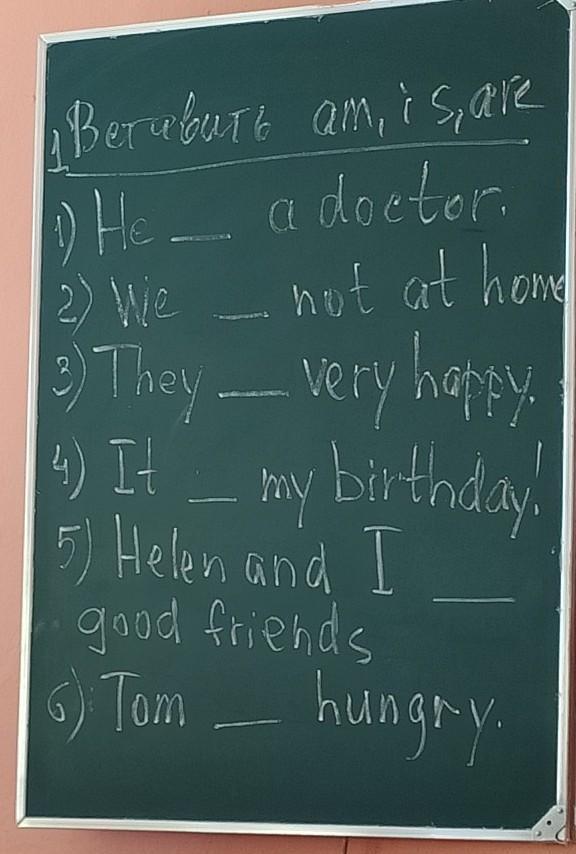 1 Вставить am, is, are
1) He __ a doctor.
2) We __ not at home
3) They __ very happy.
4) It __ my birthday!
5) Helen and I __
good friends
6) Tom __ hungry.